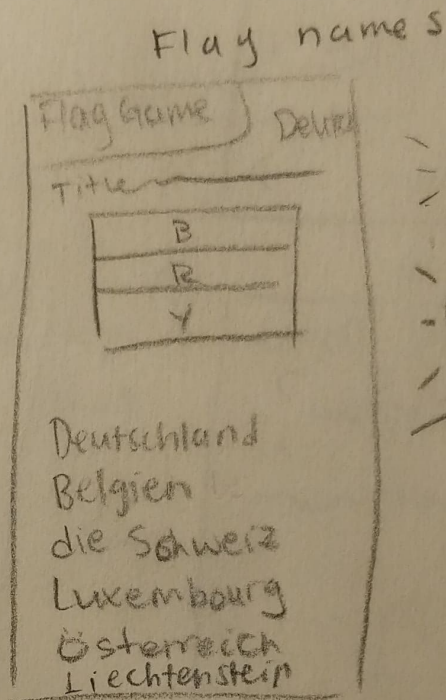 Flag names
Flag Game
Title
B
R
Y
Deutschland
Belgien
die Schweiz
Luxembourg
Österreich
Liechtenstein